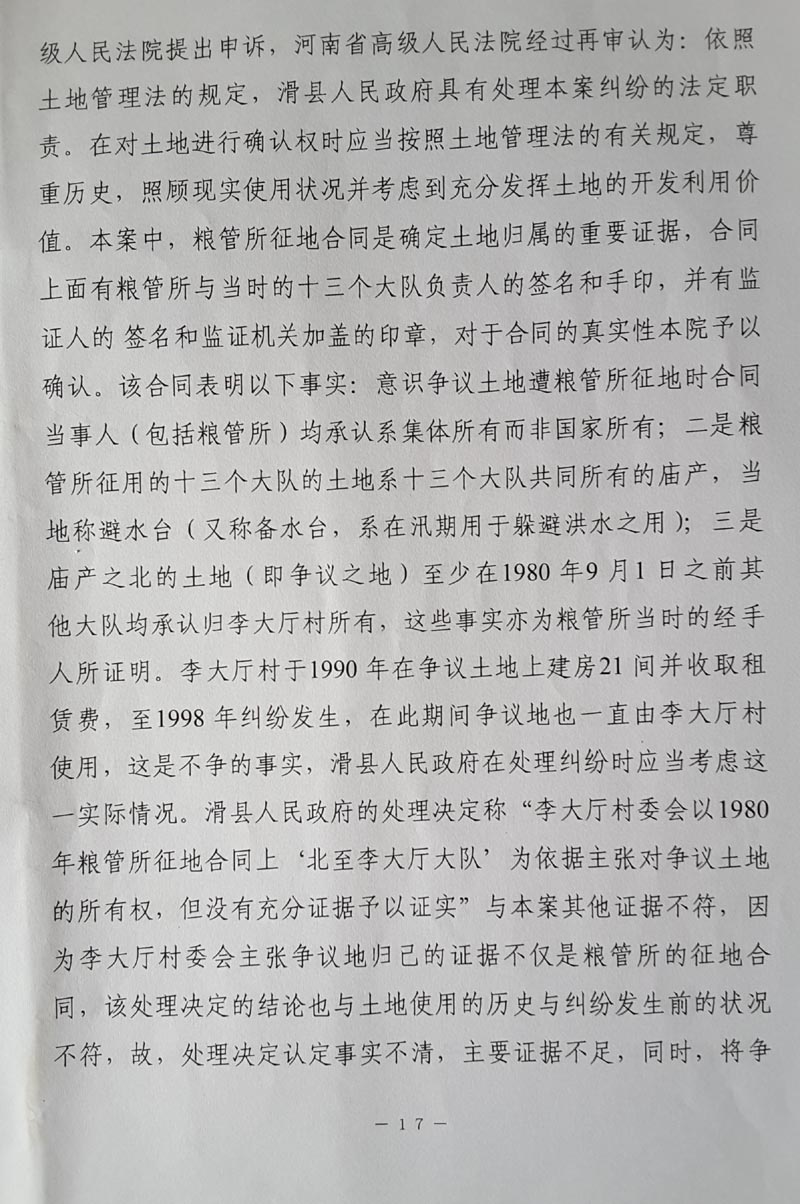 级人民法院提出申诉，河南省高级人民法院经过再审认为：依照
土地管理法的规定，滑县人民政府具有处理本案纠纷的法定职
责。在对土地进行确认权时应当按照土地管理法的有关规定，尊
重历史，照顾现实使用状况并考虑到充分发挥土地的开发利用价
值。本案中，粮管所征地合同是确定土地归属的重要证据，合同
上面有粮管所与当时的十三个大队负责人的签名和手印，并有监
证人的 签名和监证机关加盖的印章，对于合同的真实性本院予以
确认。该合同表明以下事实：意识争议土地遭粮管所征地时合同
当事人（包括粮管所）均承认系集体所有而非国家所有；二是粮
管所征用的十三个大队的土地系十三个大队共同所有的庙产，当
地称避水台（又称备水台，系在汛期用于躲避洪水之用）；三是
庙产之北的土地（即争议之地）至少在1980 年9 月1 日之前其
他大队均承认归李大厅村所有，这些事实亦为粮管所当时的经手
人所证明。李大厅村于1990 年在争议土地上建房21 间并收取租
赁费，至1998 年纠纷发生，在此期间争议地也一直由李大厅村
使用，这是不争的事实，滑县人民政府在处理纠纷时应当考虑这
一实际情况。滑县人民政府的处理决定称“李大厅村委会以1980
年粮管所征地合同上‘北至李大厅大队’为依据主张对争议土地
的所有权，但没有充分证据予以证实”与本案其他证据不符，因
为李大厅村委会主张争议地归己的证据不仅是粮管所的征地合
同，该处理决定的结论也与土地使用的历史与纠纷发生前的状况
不符，故，处理决定认定事实不清，主要证据不足，同时，将争
— 17 —